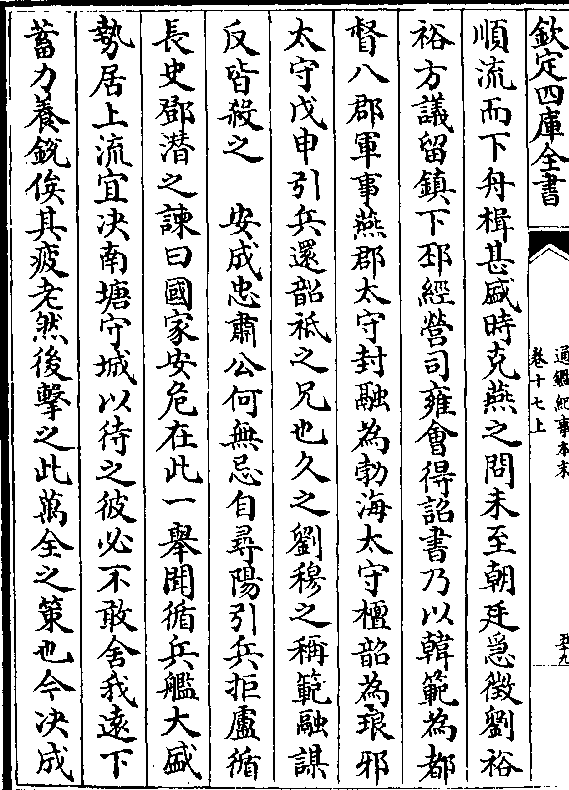 欽定四庫全書
通鑑紀事本末
卷十七上
五十九
順流而下舟楫甚盛時克燕之問未至朝廷急徵劉裕
裕方議留鎮下邳經營司雍會得詔書乃以韓範為都
督八郡軍事燕郡太守封融為勃海太守檀韶為琅邪
太守戊申引兵還韶祗之兄也久之劉穆之稱範融謀
反皆殺之　安成忠肅公何無忌自尋陽引兵拒盧循
長史鄧潛之諫曰國家安危在此一舉聞循兵艦大盛
勢居上流宜决南塘守城以待之彼必不敢舍我遠下
蓄力養銳俟其疲老然後擊之此萬全之策也今决成